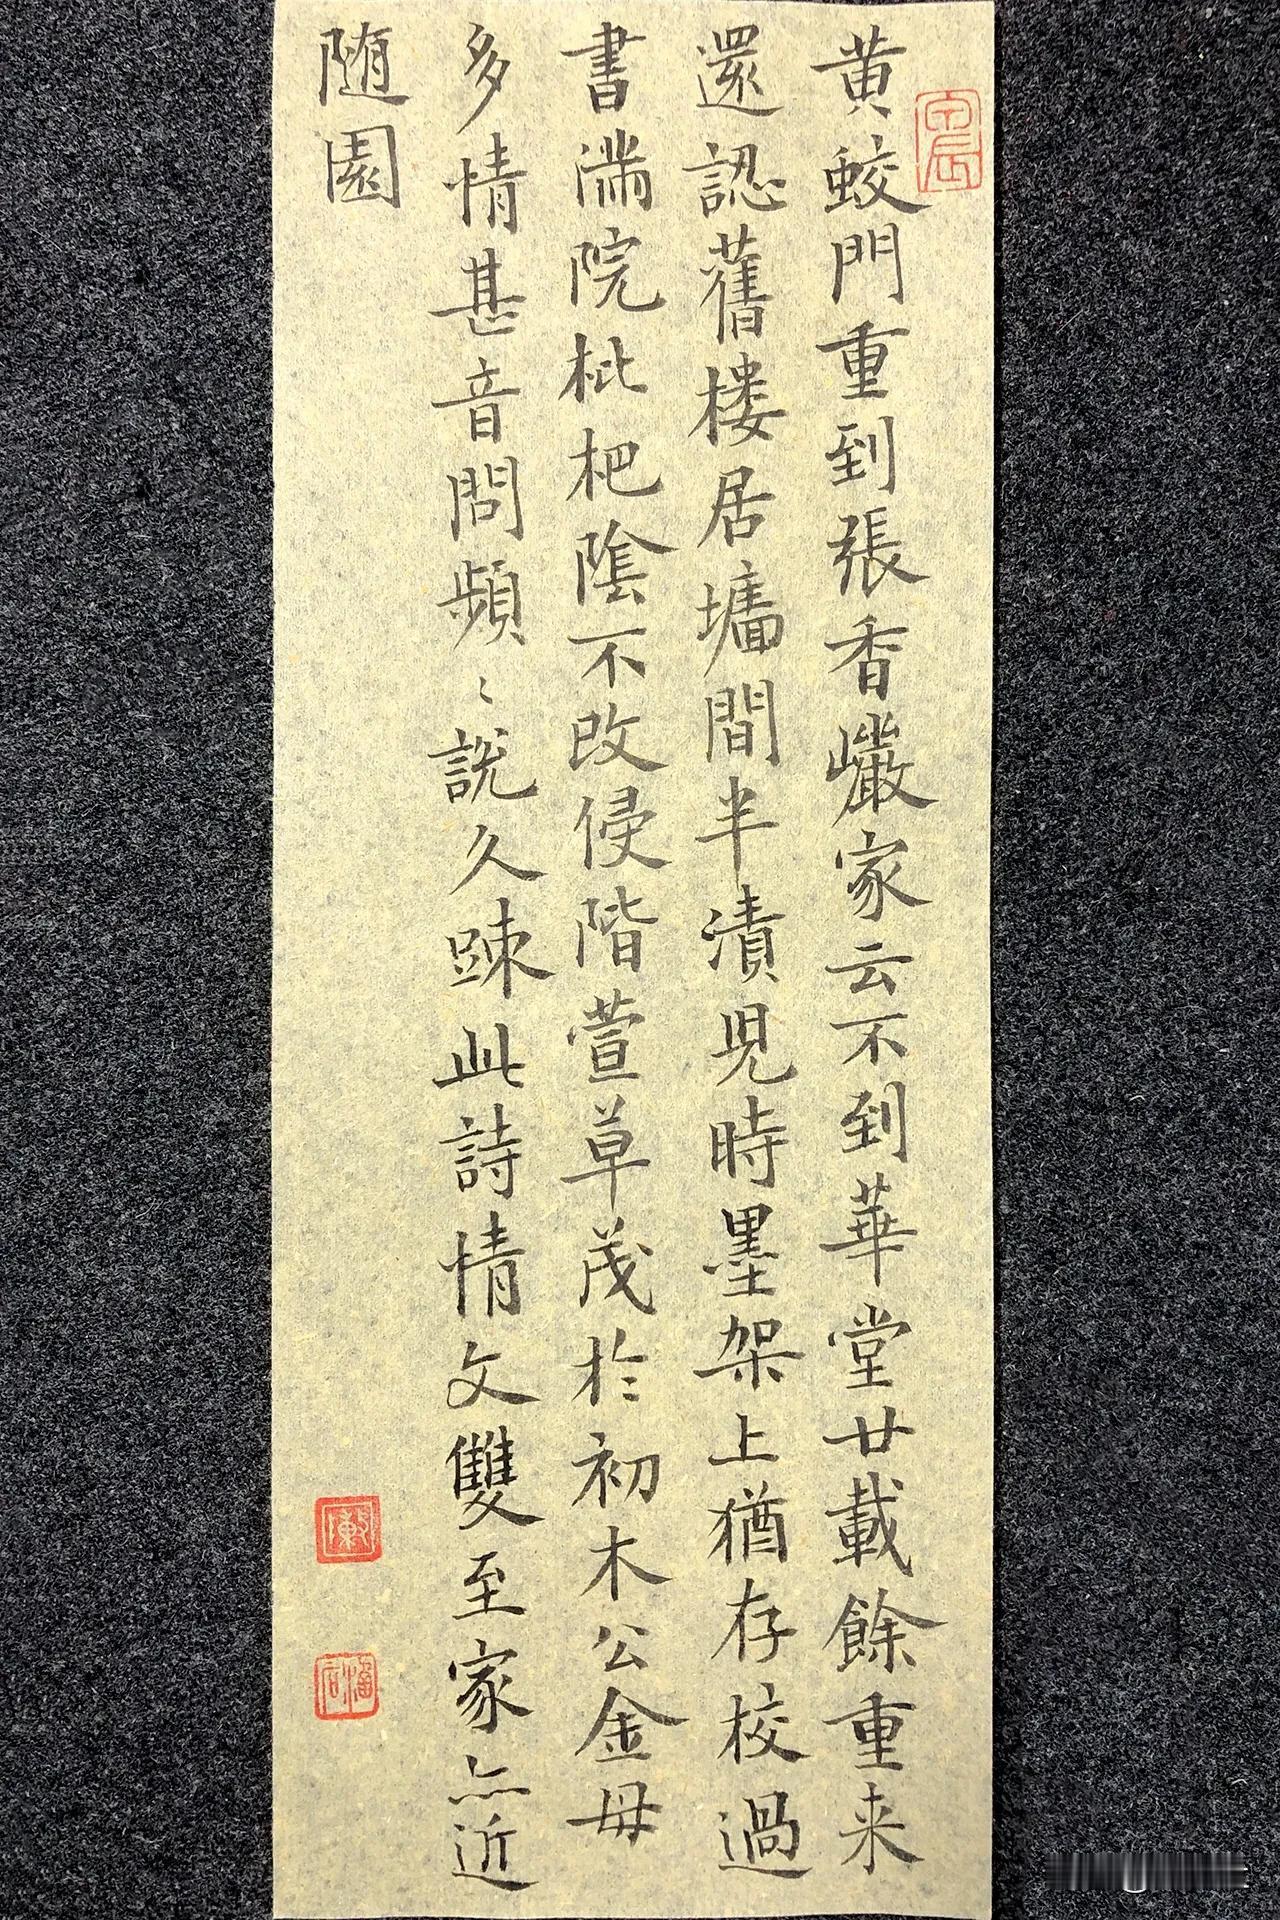 黄蛟門重到張香巘家云不到華堂廿載餘重来
還認舊楼居墻間半漬児時墨架上猶存校過
書滿院枇杷陰不改侵階萱草茂於初木公金母
多情甚音問頻〻說久踈此詩情文雙至家亦近
隨園